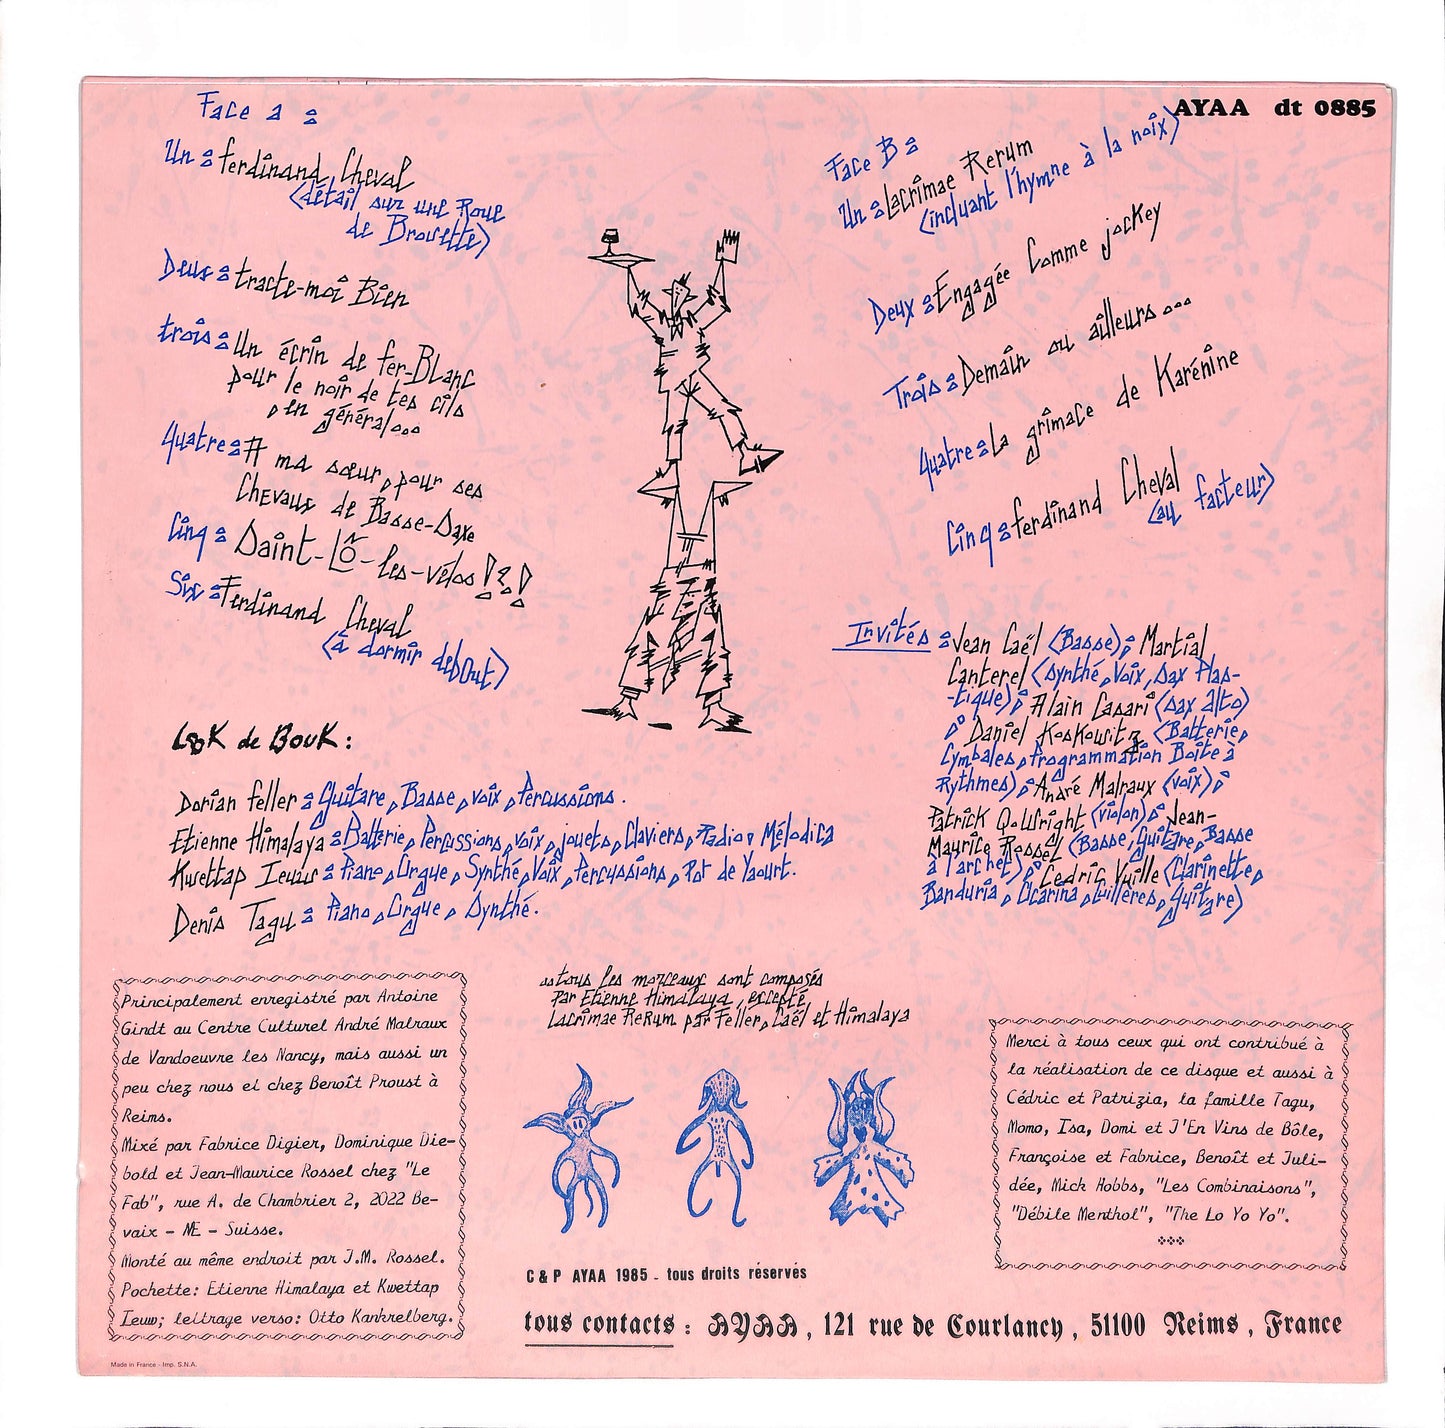 AYAA dt 0885
Face a :
Un : ferdinand Cheval
(détail sur une Roue
de Brouette)
Deux : tracte-moi Bien
trois : Un écrin de fer-BLanc
pour le noir de tes cils
, en général...
Quatre : A ma sœur, pour ses
CHEvaux de Basse-Saxe
Cinq : Saint-Lô-les-vélos !?!
Six : Ferdinand Cheval
(à dormir debOut)
Face B :
Un : Lacrimae Rerum
(incluant l'hymne à la noix)
Deux : Engagée Comme jocKey
Trois : Demain ou ailleurs...
Quatre : La grimace de Karénine
Cinq : ferdinand Cheval
(au facteur)
Invités : Jean Caël (Basse); Martial
Canterel (synthé, Voix, sax Plas-
-tique); Alain Casari (sax alto)
; Daniel Koskowitz (Batterie,
Cymbales, Programmation Boîte à
Rythmes); André Malraux (voix);
Patrick Q. Wright (violon); Jean-
Maurice Rossel (Basse, Guitare, Basse
à l'archet); Cédric Vuille (Clarinette,
Banduria, Ocarina, Cuillères, Guitare)
LooK de BouK :
Dorian feller : Guitare, Basse, voix, Percussions.
Etienne Himalaya : Batterie, Percussions, voix, jouets, Claviers, Radio, Mélodica
Kwettap Ieuw : Piano, Orgue, Synthé, Voix, Percussions, Pot de Yaourt.
Denis Tagu : Piano, Orgue, Synthé.
tous les morceaux sont composés
Par Etienne Himalaya, excepté
Lacrimae Rerum par Feller, Caël et Himalaya
Principalement enregistré par Antoine
Gindt au Centre Culturel André Malraux
de Vandoeuvre les Nancy, mais aussi un
peu chez nous et chez Benoît Proust à
Reims.
Mixé par Fabrice Digier, Dominique Die-
bold et Jean-Maurice Rossel chez "Le
Fab", rue A. de Chambrier 2, 2022 Be-
vaix - NE - Suisse.
Monté au même endroit par J.M. Rossel.
Pochette: Etienne Himalaya et Kwettap
Ieuw; lettrage verso: Otto Kankrelberg.
Merci à tous ceux qui ont contribué à
la réalisation de ce disque et aussi à
Cédric et Patrizia, la famille Tagu,
Momo, Isa, Domi et J'En Vins de Bôle,
Françoise et Fabrice, Benoît et Juli-
dée, Mick Hobbs, "Les Combinaisons",
"Débile Menthol", "The Lo Yo Yo".
C & P AYAA 1985 - tous droits réservés
tous contacts : AYAA, 121 rue de Courlancy, 51100 Reims, France
Made in France - Imp. S.N.A.